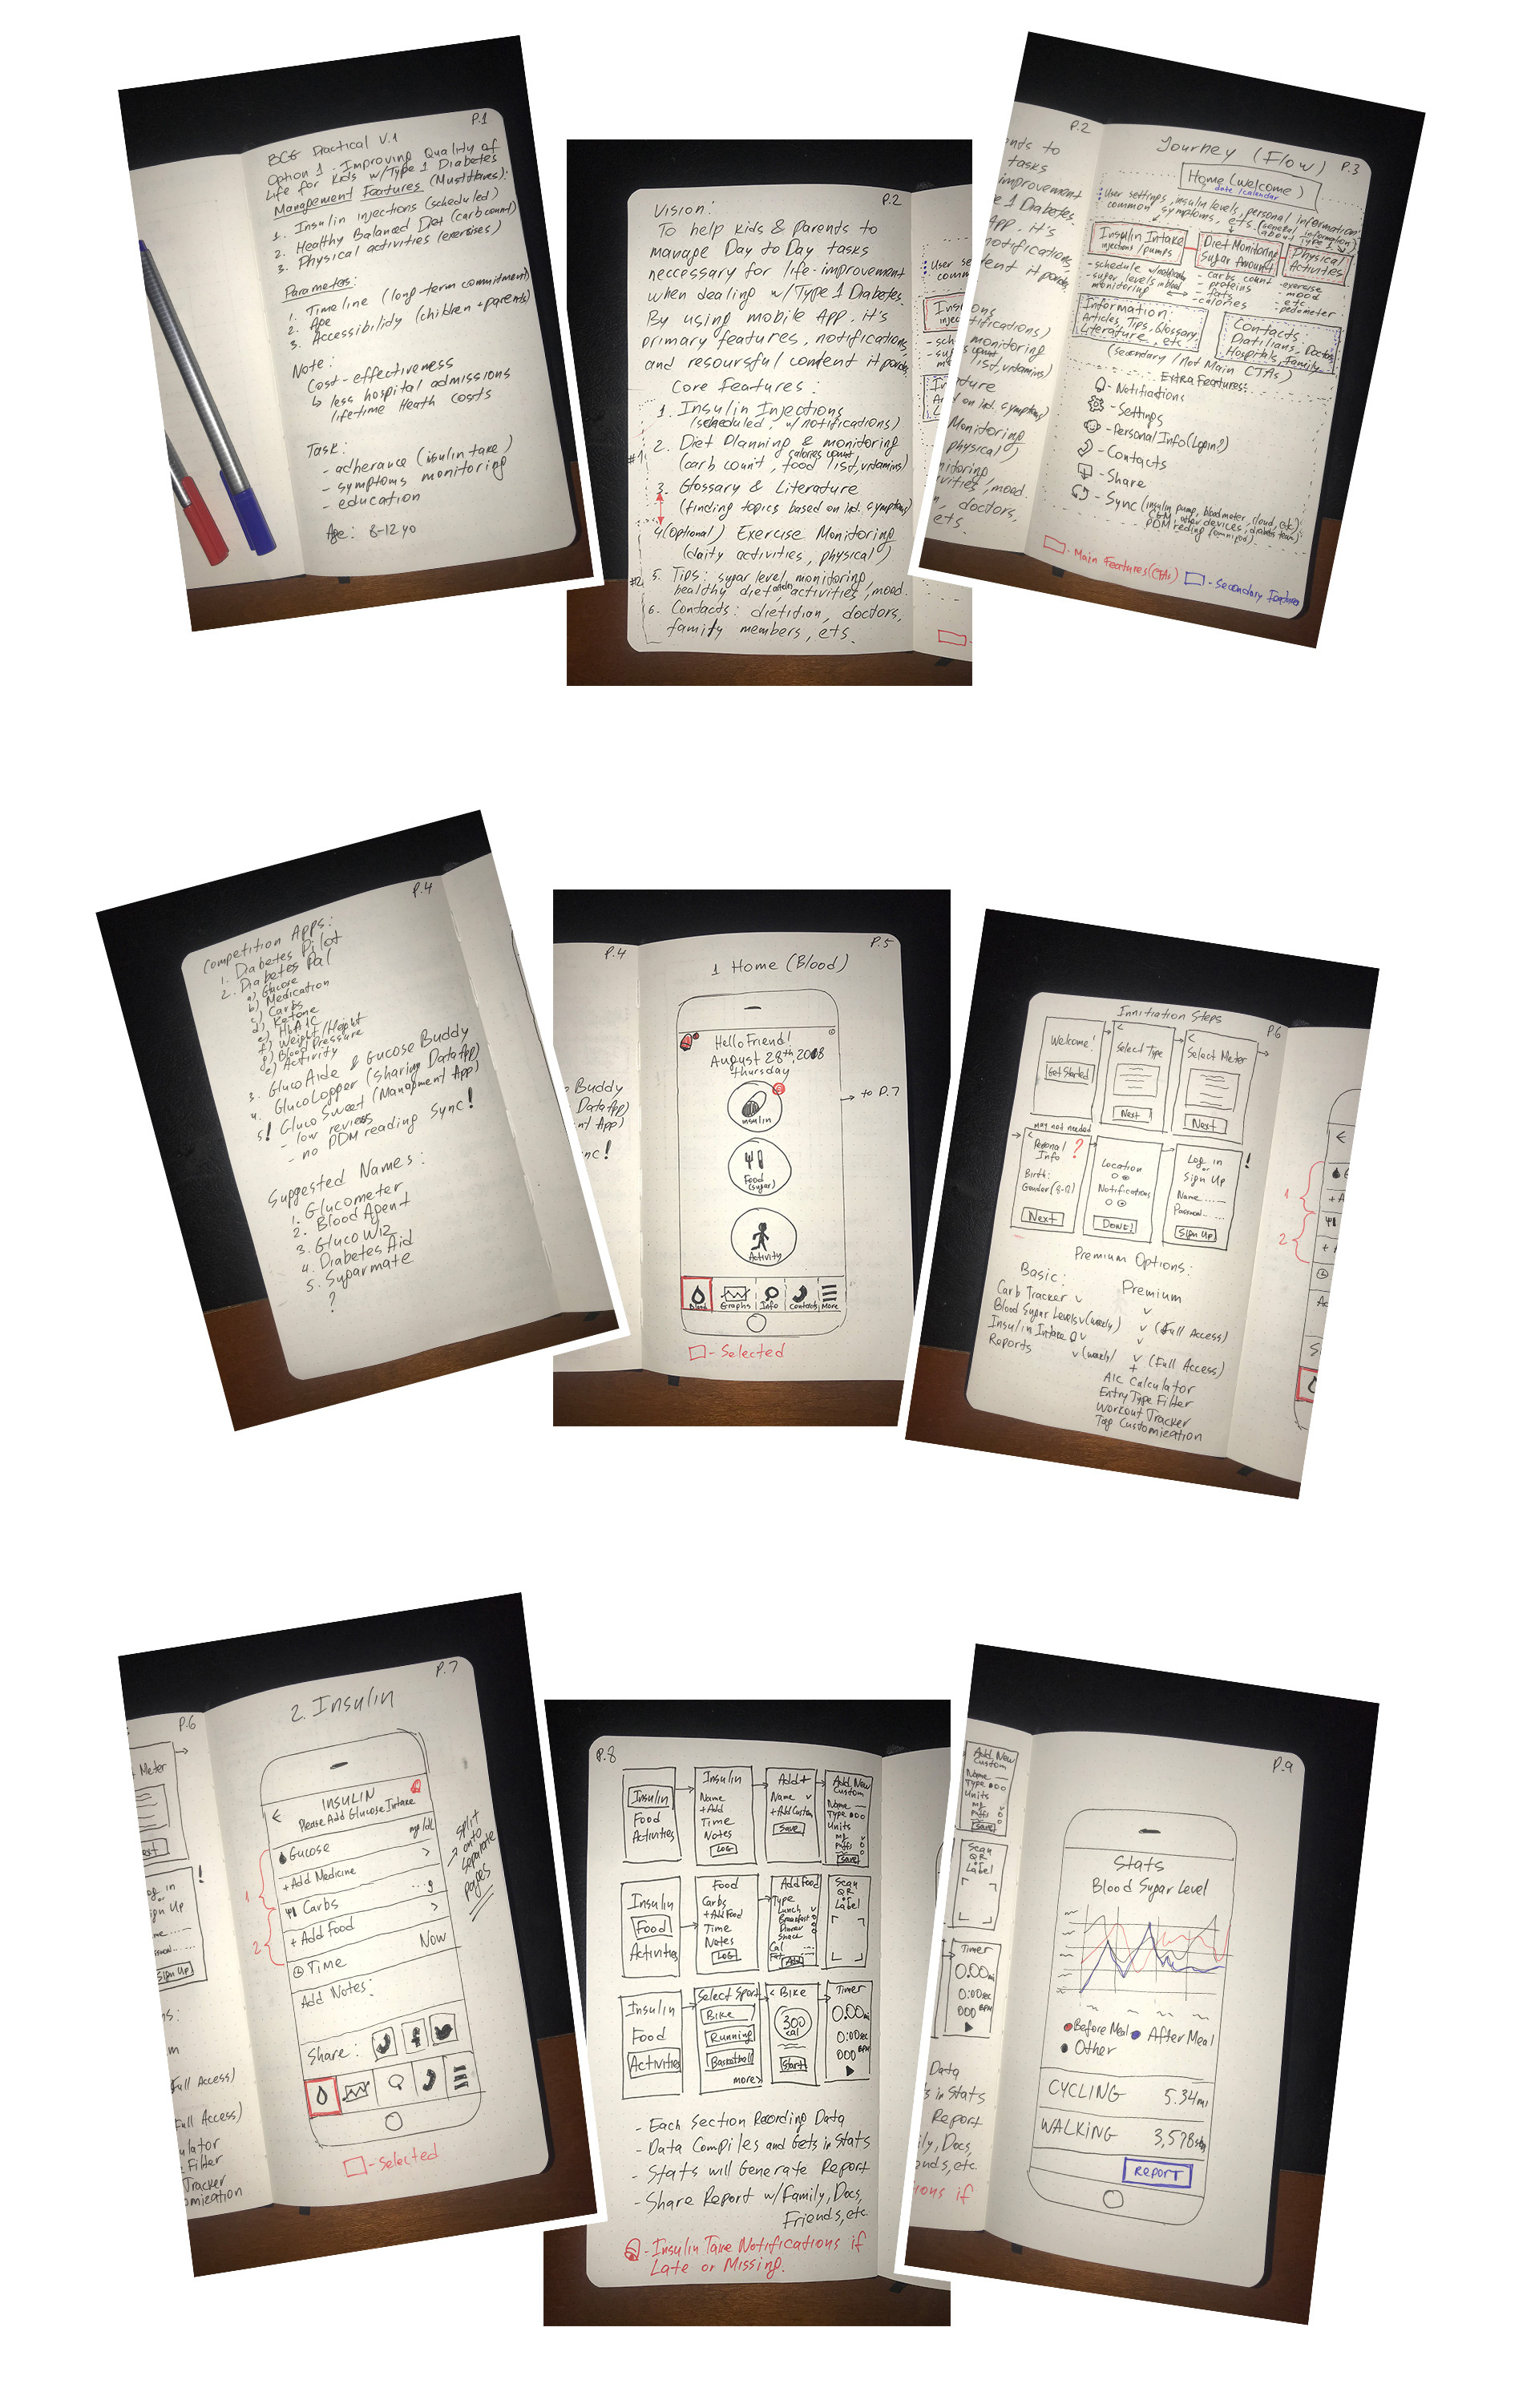 P.1
BCG Practical V.1
Option 1. Improving Quality of
Life for Kids w/Type 1 Diabetes
Management Features (Musthaves):
1. Insulin injections (scheduled)
2. Healthy Balanced Diet (carb count)
3. Physical activities (exercises)
Parameters:
1. Timeline (long-term commitment)
2. Age
3. Accessibility (children + parents)
Note:
Cost-effectiveness
↳ less hospital admissions
lifetime Heath costs
Task:
- adherance (insulin take)
- symptoms monitoring
- education
Age: 8-12 yo
P.2
Vision:
To help kids & parents to
manage Day to Day tasks
neccessary for life-improvement
when dealing w/Type 1 Diabetes.
By using mobile App. it's
primary features, notifications,
and resoursful content it
Core Features:
1. Insulin Injections
(scheduled, w/ notifications)
2. Diet Planning & monitoring
calories count
(carb count, food list, vitamins)
#1
3. Glossary & Literature
(finding topics based on ind. symptoms)
4 (Optional) Exercise Monitoring
(daily activities, physical)
#2
5. Tips: sugar level monitoring,
healthy diet, activities, mood.
6. Contacts: dietitian, doctors,
family members, ets.
P.2
P.3
Journey (Flow)
Home (welcome)
date/calendar
User settings, insulin levels, personal information
common symptoms, ets. (general information
about Type 1)
Insulin Intake
injections/pumps
Diet Monitoring
Sugar Amount
Physical
Activities
- schedule w/notific
- sugar levels in blood
monitoring
- carbs count
- proteins
- fats
- calories
- exercise
- mood
- etc
- pedometer
Information:
Articles, Tips, Glossary
Literature, etc
Contacts:
Diatilians, Doctors
Hospitals, Family
(secondary / Not Main CTAs)
Extra Features:
- Notifications
- Settings
- Personal Info (Login?)
- Contacts
- Share
- Sync (insulin pump, bloodmeter, cloud, etc);
CGM, other devices, diabetes team)
PDM reding (omnipod).
- Main Features (CTAs)
- Secondary Features
P.4
Competition Apps:
1. Diabetes Pilot
2. Diabetes Pal
a) Glucose
b) Medication
c) Carbs
d) Ketone
e) HbA1C
f) Weight/Height
g) Blood Pressure
e) Activity
3. GlucoAide & Glucose Buddy
4. GlucoLogger (Sharing Data App)
5! Gluco Sweet (Managment App)
- low reviews
- no PDM reading Sync!
Suggested Names:
1. Glucometer
2. Blood Agent
3. GlucoWiz
4. Diabetes Aid
5. Sugarmate
?
P.4
P.5
1 Home (Blood)
Hello Friend!
August 28th, 2018
Thursday
Insulin
Food
(sugar)
Activity
→ to P.7
Blood
Graphs
Info
Contacts
More
- Selected
P.6
Innitiation Steps
Welcome!
Get Started
Select Type
Next
Select Meter
Next
may not needed
Personal
Info
?
Birth:
Gender (8-12)
Next
Location
Notifications
DONE!
Log in
or
Sign Up
Name
Password
Sign Up
!
Premium Options:
Basic:
Premium
Carb Tracker v
v
Blood Sugar Levels v (weekly)
v (Full Access)
Insulin Intake v
v
Reports v (weekly)
v (Full Access)
+
A1C Calculator
Entry Type Filter
Workout Tracker
Tag Customization
P.6
P.7
2. Insulin
INSULIN
Please Add Glucose Intake
Glucose mg/dL
+ Add Medicine >
Carbs ...g
+ Add Food >
Time Now
Add Notes:
Share:
1
2
→ split
onto
separate
pages
- Selected
P.8
Insulin
Food
Activities
Insulin
Name
+Add
Time
Notes
LOG
Add+
Name v
+Add Custom
Save
Add New
Custom
Name
Type
Units
mg
Puffs
Save
Insulin
Food
Activities
Food
Carbs
+Add Food
Time
Notes
LOG
Add Food
Type
Lunch
Breakfast
Dinner
Snack
Cal
Fat
Add
Scan
QR
or
Label
Insulin
Food
Activities
Select Sport
Bike
Running
Basketball
more>
< Bike
300
cal
Start
Timer
0.00mi
0:00sec
000 BPM
- Each Section Recording Data
- Data Compiles and Gets in Stats
- Stats will Generate Report
- Share Report w/Family, Docs,
Friends, etc.
- Insulin Take Notifications if
Late or Missing.
P.9
Stats
Blood Sugar Level
Before Meal
After Meal
Other
CYCLING 5.34mi
WALKING 3,578
REPORT